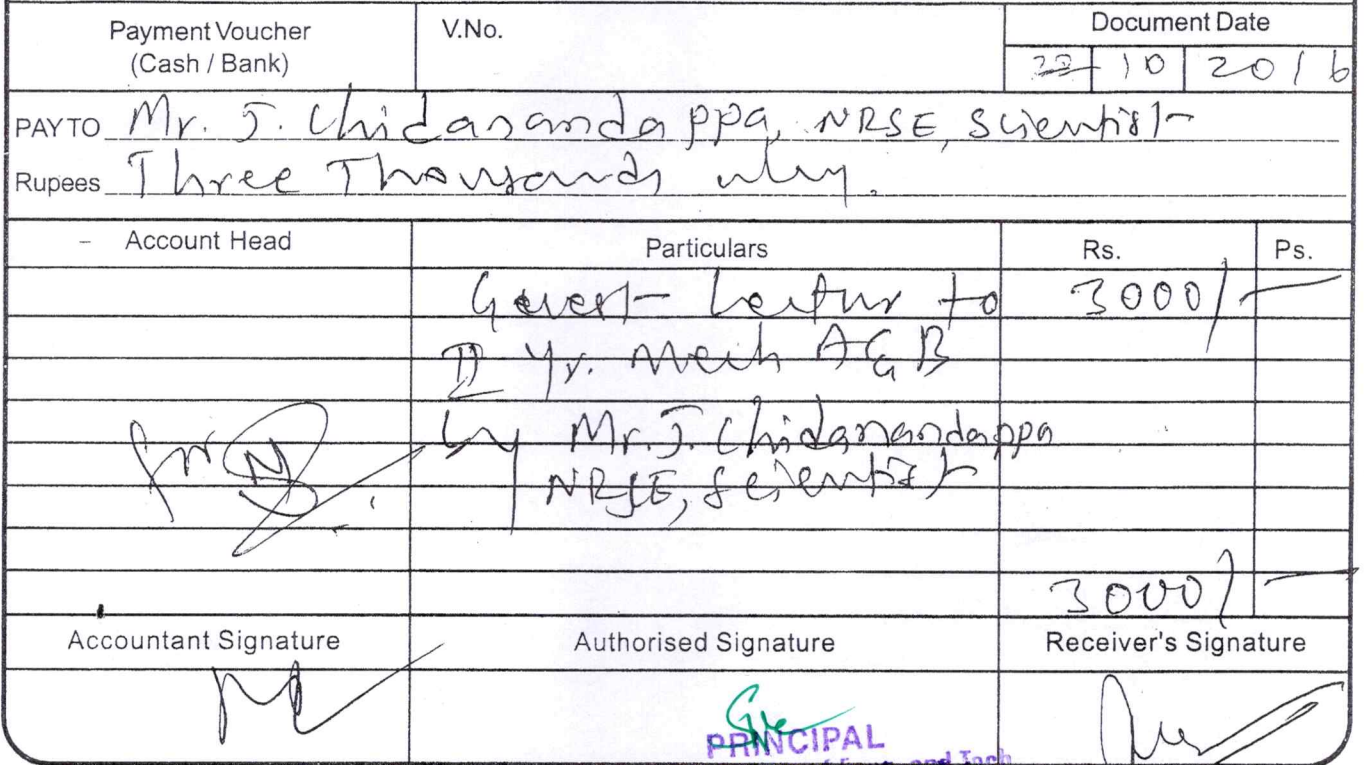 Payment Voucher
(Cash / Bank)
V.No.
Document Date
22 10 2016
PAY TO Mr. J. Chidanandappa, NRSE, Scientist
Rupees Three Thousands only.
Account Head Particulars Rs. Ps.
Guest Lectur to 3000/-
II Yr. Mech A & B
by Mr. J. Chidanandappa
NRSE, Scientist
3000/-
Accountant Signature Authorised Signature Receiver's Signature
PRINCIPAL
and Tech